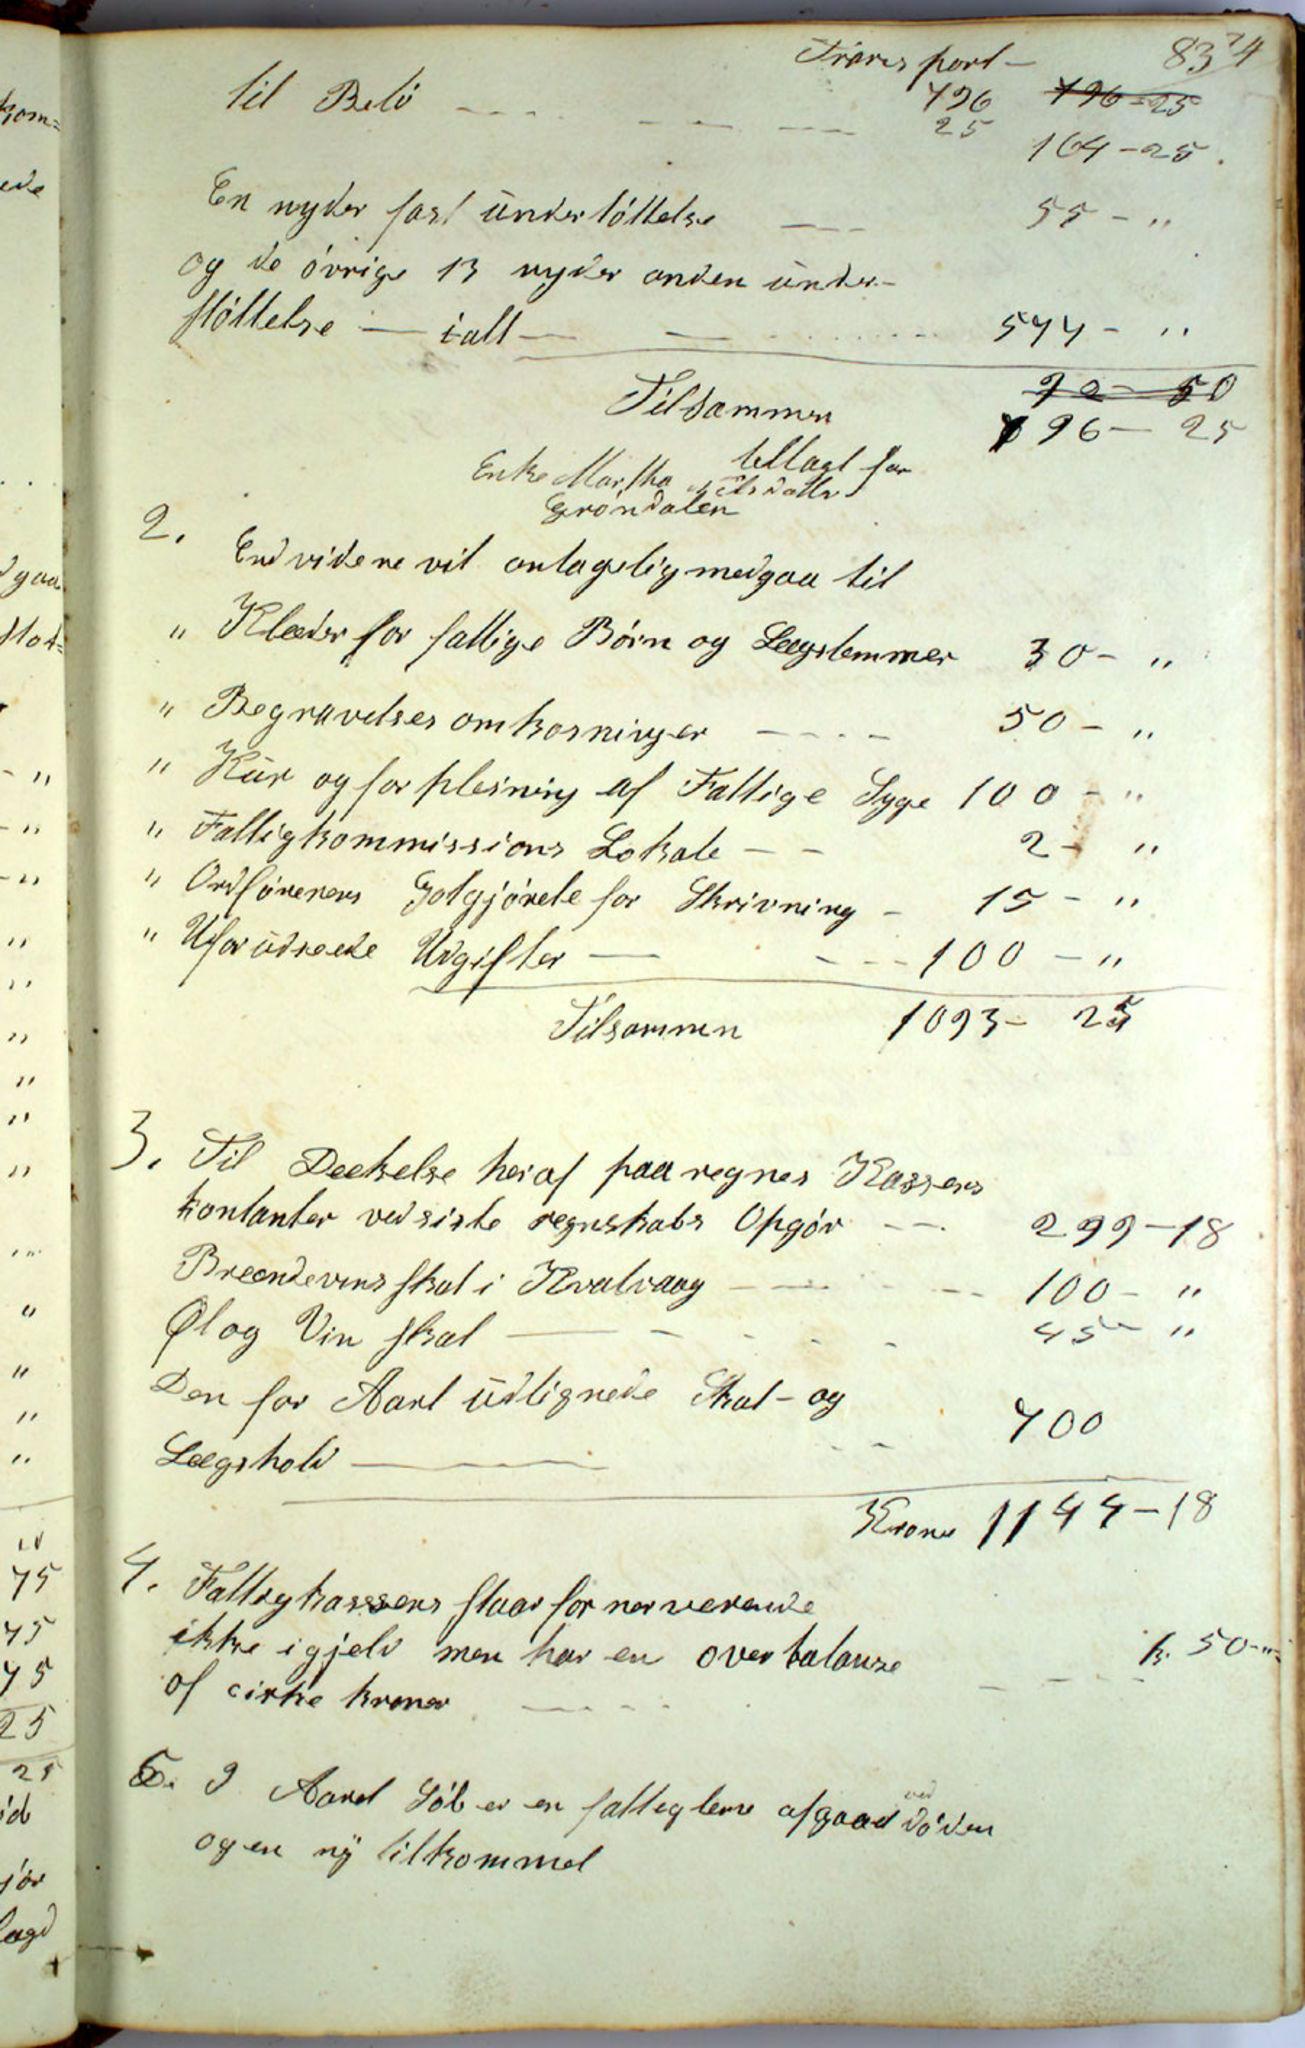 Transport- 83 74
til Belö - - - - - - 796 796-25
25
164-25.
En nyder fast understöttelse - - - 55 - "
og de övrige 13 nyder anden under-
stöttelse — ialt — - - - - - 577 - "
Tilsammen 72 - 50
796 - 25
tillagt for
Enke Martha Nilsdatter
Gröndalen
2. Endvidere vil antagelig medgaa til
" Klæder for fattige Börn og Lægslemmer 30 - "
" Begravelses omkosninger - - - - 50 - "
" Kur og forpleining af Fattige Syge 100 - "
" Fattigkommissions Lokale - - 2 - "
" Ordförerens Godgjörele for Skrivning - 15 - "
" Uforudseede Udgifter — - - - 100 - "
Tilsammen 1093 - 25
3. Til Deekelse heraf paaregnes Kassens
kontanter ved siste regnskabs Opgör - - 299-18
Brændevins skat i Kvalvaag - - - - 100 - "
Øl og Vin skat — - - - - 45 - "
Den for Aaret udlignede Skat- og
Lægshold — - - 700
Kroner 1144-18
4. Fattigkassens staar for nerverende
ikke i gjeld men har en overbalanse
af cirke kroner - - - - - - - - k. 50-"
5. I Aaret Löb er en fattiglem afgaaed ved döden
og en ny tilkommet